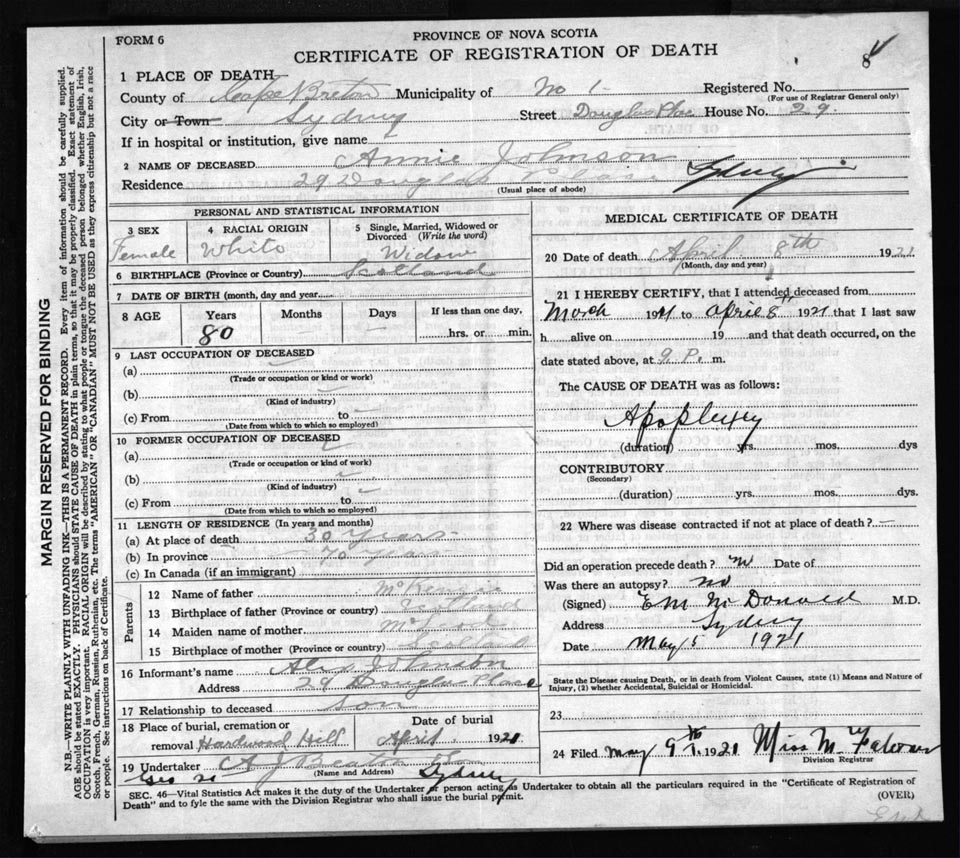 FORM 6
PROVINCE OF NOVA SCOTIA
CERTIFICATE OF REGISTRATION OF DEATH
8
1 PLACE OF DEATH
County of Cape Breton Municipality of No 1. Registered No.
(For use of Registrar General only)
City or Town Sydney Street Douglas Place House No. 29.
If in hospital or institution, give name
2 NAME OF DECEASED Annie Johnson
Residence 29 Douglas Place Sydney
(Usual place of abode)
PERSONAL AND STATISTICAL INFORMATION
3 SEX Female
4 RACIAL ORIGIN White
5 Single, Married, Widowed or Divorced (Write the word) Widow
6 BIRTHPLACE (Province or Country) Scotland
7 DATE OF BIRTH (month, day and year)
8 AGE Years 80 Months Days If less than one day, hrs. or min.
9 LAST OCCUPATION OF DECEASED
(a)
(Trade or occupation or kind or work)
(b)
(Kind of industry)
(c) From to
(Date from which to which so employed)
10 FORMER OCCUPATION OF DECEASED
(a)
(Trade or occupation or kind of work)
(b)
(Kind of industry)
(c) From to
(Date from which to which so employed)
11 LENGTH OF RESIDENCE (In years and months)
(a) At place of death 30 years
(b) In province 70 years
(c) In Canada (if an immigrant)
Parents
12 Name of father McKenzie
13 Birthplace of father (Province or country) Scotland
14 Maiden name of mother McLeod
15 Birthplace of mother (Province or country) Scotland
16 Informant's name Alex Johnson
Address 29 Douglas Place
17 Relationship to deceased Son
18 Place of burial, cremation or removal Hardwood Hill
Date of burial April 1921
19 Undertaker A J Beaton
(Name and Address) Sydney
MEDICAL CERTIFICATE OF DEATH
20 Date of death April 8th 1921
(Month, day and year)
21 I HEREBY CERTIFY, that I attended deceased from
March 1921 to April 8th 1921 that I last saw
h alive on 19 and that death occurred, on the
date stated above, at 9 P. m.
The CAUSE OF DEATH was as follows:
Apoplexy
(duration) yrs. mos. dys
CONTRIBUTORY
(Secondary)
(duration) yrs. mos. dys.
22 Where was disease contracted if not at place of death?
Did an operation precede death? No Date of
Was there an autopsy? no
(Signed) E M McDonald M.D.
Address Sydney
Date May 5 1921
State the Disease causing Death, or in death from Violent Causes, state (1) Means and Nature of Injury, (2) whether Accidental, Suicidal or Homicidal.
23
24 Filed May 9th, 1921 Miss M.
Division Registrar
SEC. 46—Vital Statistics Act makes it the duty of the Undertaker or person acting as Undertaker to obtain all the particulars required in the "Certificate of Registration of
Death" and to fyle the same with the Division Registrar who shall issue the burial permit.
(OVER)
MARGIN RESERVED FOR BINDING
N.B.—WRITE PLAINLY WITH UNFADING INK—THIS IS A PERMANENT RECORD. Every item of information should be carefully supplied.
AGE should be stated EXACTLY. PHYSICIANS should STATE CAUSE OF DEATH in plain terms, so that it may be properly classified. Exact statement of
OCCUPATION is very important. RACIAL ORIGIN will be described by stating to what people or tongue the deceased person belonged whether English, Irish,
Scotch, French, German, Russian, Ruthenian, etc. The terms "AMERICAN" OR "CANADIAN" MUST NOT BE USED as they express citizenship but not a race
or people. See instructions on back of Certificate.